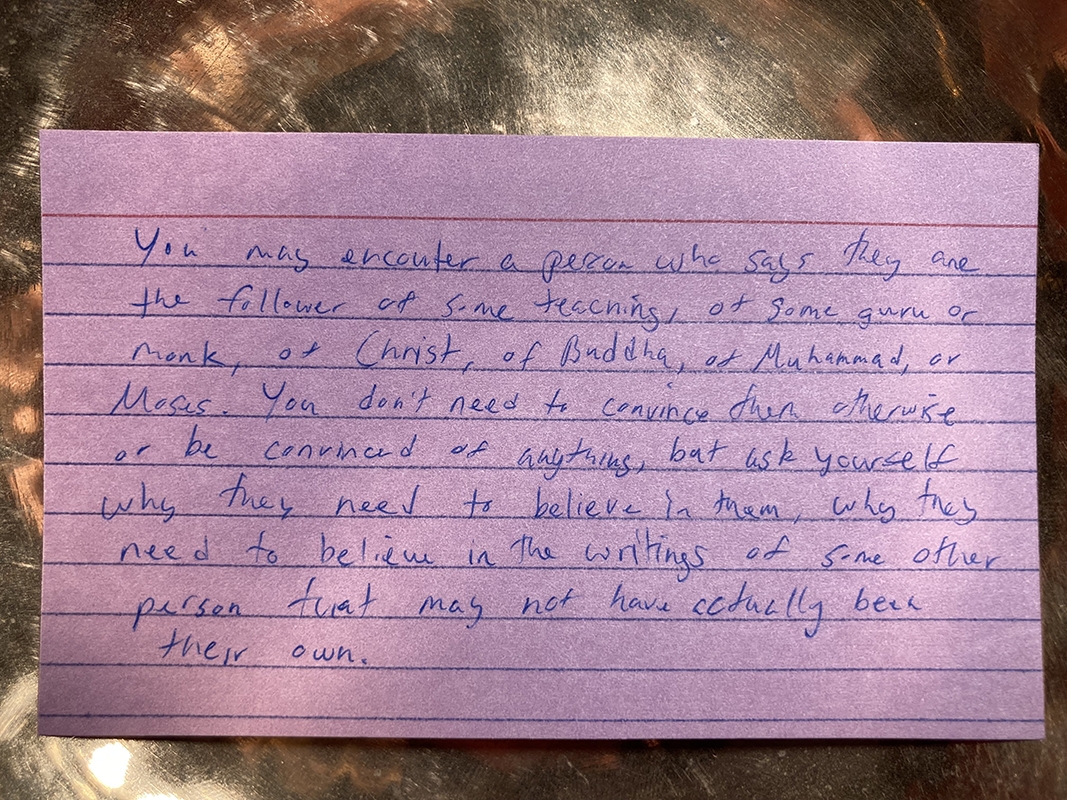 You may encouter a person who says they are
the follower of some teaching, of some guru or
monk, of Christ, of Buddha, of Muhammad, or
Moses. You don't need to convince them otherwise
or be convinced of anything, but ask yourself
why they need to believe in them, why they
need to believe in the writings of some other
person that may not have actually been
their own.